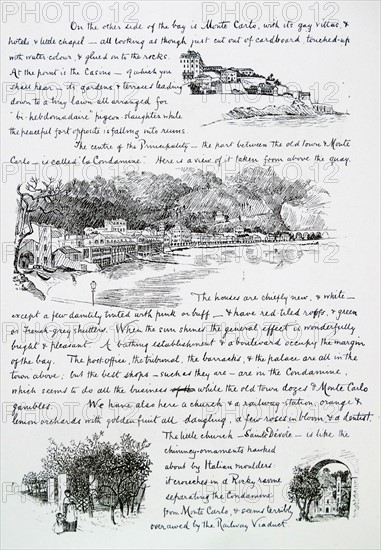 On the other side of the bay is Monte Carlo, with its gay villas, &
hotels & little chapel — all looking as though just cut out of cardboard, touched-up
with water-colour, & glued on to the rocks.
At the point is the Casino — of which you
shall hear — its gardens & terraces leading
down to a tiny lawn all arranged for
"bi-hebdomadaire" pigeon-slaughter while
the peaceful fort opposite is falling into ruins.
The centre of the Principality — the part between the old town & Monte
Carlo — is called "la Condamine". Here is a view of it taken from above the quay.
The houses are chiefly new, & white —
except a few daintily tinted with pink or buff — & have red-tiled roofs, & green
or French-grey shutters. When the sun shines the general effect is wonderfully
bright & pleasant. A bathing establishment & a boulevard occupy the margin
of the bay. The post-office, the tribunal, the barracks, & the palace are all in the
town above; but the best shops — such as they are — are in the Condamine,
which seems to do all the business while the old town dozes & Monte Carlo
gambles. We have also here a church & a railway-station, orange &
lemon orchards with golden fruit all dangling, a few roses in bloom & a dentist.
The little church — Sainte Dévote — is like the
chimney-ornaments hawked
about by Italian moulders:
it crouches in a Rocky ravine
separating the Condamine
from Monte Carlo, & seems terribly
overawed by the Railway Viaduct